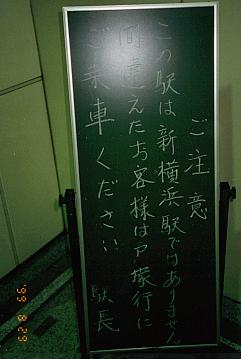 ご注意
この駅は新横浜駅ではありません
間違えたお客様は戸塚行に
ご乗車ください
駅長
'99 8 29